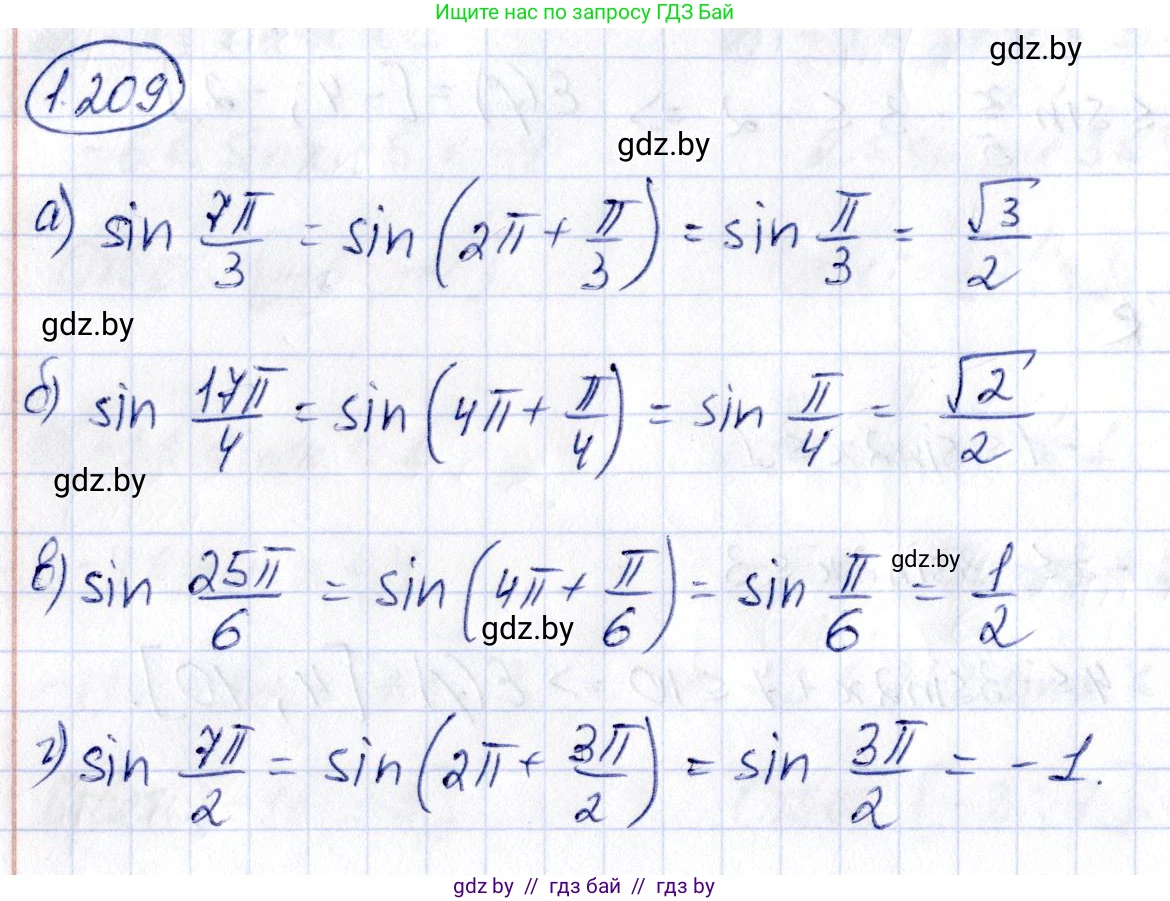 Ищите нас по запросу ГДЗ Бай
gdz.by
1.209
gdz.by
а) sin 7π/3 = sin (2π + π/3) = sin π/3 = √3/2
gdz.by
б) sin 17π/4 = sin (4π + π/4) = sin π/4 = √2/2
gdz.by
в) sin 25π/6 = sin (4π + π/6) = sin π/6 = 1/2
gdz.by
gdz.by
г) sin 7π/2 = sin (2π + 3π/2) = sin 3π/2 = -1.
gdz.by // гдз бай // gdz by